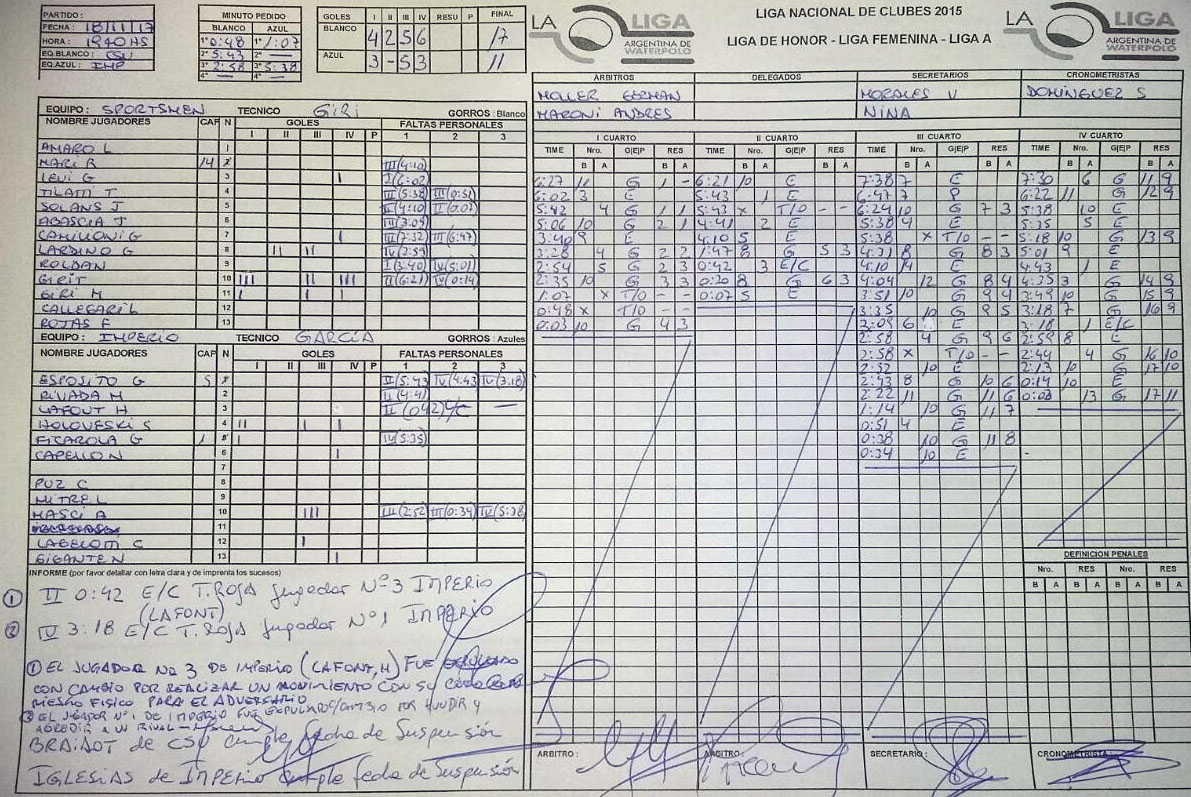 PARTIDO :
FECHA : 18/11/17
HORA : 1940 HS
EQ.BLANCO : CSU
EQ.AZUL : IMP
MINUTO PEDIDO
BLANCO AZUL
1° 0:48 1° 1:07
2° 5:43 2° —
3° 2:58 3° 5:38
4° — 4° —
GOLES I II III IV RESU P FINAL
BLANCO 4 2 5 6 17
AZUL 3 - 5 3 11
LA LIGA ARGENTINA DE WATERPOLO
LIGA NACIONAL DE CLUBES 2015
LIGA DE HONOR - LIGA FEMENINA - LIGA A
LA LIGA ARGENTINA DE WATERPOLO
ARBITROS DELEGADOS SECRETARIOS CRONOMETRISTAS
MOLLER GERMAN MORALES V DOMINGUEZ S
MARONI ANDRES NINA
EQUIPO : SPORTSMEN TECNICO GIRI GORROS : Blanco
NOMBRE JUGADORES CAP N GOLES FALTAS PERSONALES
I II III IV P 1 2 3
AMARO L 1
MARI R 14 2 III(4:10)
LEVI G 3 I I(6:02)
TILAMI T 4 II(5:38) III(0:51)
SOLANS J 5 II(4:10) II(0:07)
ABASCIA J 6 III(3:09)
CAMILIONI G 7 I III(7:32) III(6:47)
LARDINO G 8 II II IV(2:59)
ROLDAN 9 I(3:40) IV(5:01)
GIRI T 10 III I II III II(6:21) IV(0:14)
GIRI M 11 I I I
CALLEGARI L 12
ROTAS F 13
EQUIPO : IMPERIO TECNICO GARCIA GORROS : Azules
NOMBRE JUGADORES CAP N GOLES FALTAS PERSONALES
I II III IV P 1 2 3
ESPOSITO G 5 1 II(5:43) IV(4:43) IV(3:18)
RIVADA M 2 II(4:41)
LAFONT H 3 II(0:42) E/C —
HOLOVESKI S 4 II I I
FICAROLA G 1 5 I IV(5:35)
CAPELLO N 6 I
7
PUZ C 8
MITRE L 9
MASCI A 10 III III(2:52) III(0:34) IV(5:38)
11
LAGELOM C 12 I
GIGANTE N 13 I
I CUARTO
TIME Nro. G|E|P RES
B A B A
6:27 11 G 1 -
6:02 3 E
5:42 4 G 1 1
5:06 10 G 2 1
3:40 9 E
3:28 4 G 2 2
2:54 5 G 2 3
2:35 10 G 3 3
1:07 x T/O - -
0:48 x T/O - -
0:03 10 G 4 3
II CUARTO
TIME Nro. G|E|P RES
B A B A
6:21 10 E
5:43 1 E
5:43 x T/O - -
4:41 2 E
4:10 5 E
1:47 8 G 5 3
0:42 3 E/C
0:20 8 G 6 3
0:07 5 E
III CUARTO
TIME Nro. G|E|P RES
B A B A
7:38 7 E
6:47 7 P
6:24 10 G 7 3
5:38 4 E
5:38 x T/O - -
4:31 8 G 8 3
4:10 14 E
4:04 12 G 8 4
3:51 10 G 9 4
3:35 10 G 9 5
3:09 6 E
2:58 4 G 9 6
2:58 x T/O - -
2:52 10 E
2:43 8 G 10 6
2:22 11 G 11 6
1:14 10 G 11 7
0:51 4 E
0:38 10 G 11 8
0:34 10 E
IV CUARTO
TIME Nro. G|E|P RES
B A B A
7:30 6 G 11 9
6:22 11 G 12 9
5:38 10 E
5:35 5 E
5:18 10 G 13 9
5:01 9 E
4:43 1 E
4:35 3 G 14 9
3:49 10 G 15 9
3:18 7 G 16 9
3:18 1 E/C
2:59 8 E
2:44 4 G 16 10
2:13 10 G 17 10
0:14 10 E
0:03 13 G 17 11
DEFINICION PENALES
Nro. RES Nro. RES
B A B A B A B A
INFORME (por favor detallar con letra clara y de imprenta los sucesos)
① II 0:42 E/C T.ROJA jugador Nº3 IMPERIO
(LAFONT)
② IV 3:18 E/C T.ROJA jugador Nº1 IMPERIO
① EL JUGADOR No 3 DE IMPERIO (LAFONT, H) FUE EXPULSADO
CON CAMBIO POR REALIZAR UN MOVIMIENTO CON SU CODO
RIESGO FISICO PARA EL ADVERSARIO
② EL JUGADOR Nº1 DE IMPERIO FUE EXPULSADO C/CAMBIO POR HUNDIR Y
AGREDIR A UN RIVAL
BRAIDOT de CSU cumple fecha de Suspensión
IGLESIAS de IMPERIO cumple fecha de Suspensión
ARBITRO : ARBITRO : SECRETARIO : CRONOMETRISTA :